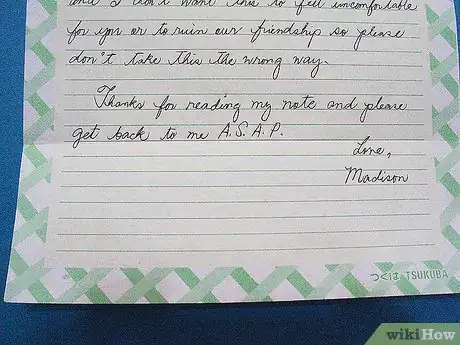 and I don't want this to feel uncomfortable
for you or to ruin our friendship so please
don't take this the wrong way.
Thanks for reading my note and please
get back to me A.S.A.P.
Love,
Madison
つくば TSUKUBA
wikiHow